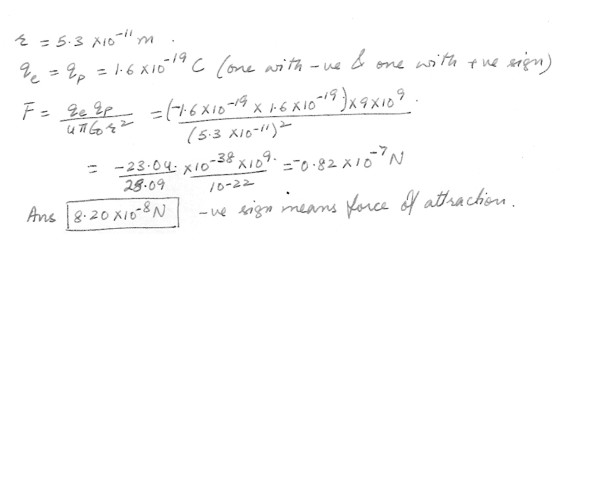 r = 5.3 x10⁻¹¹ m .
qe = qp = 1.6 x10⁻¹⁹ C (one with -ve & one with +ve sign)
F = qe qp / 4π∈₀r² = (-1.6 x10⁻¹⁹ x 1.6 x10⁻¹⁹) x 9 x10⁹ / (5.3 x10⁻¹¹)² .
= -23.04 . x10⁻³⁸ x10⁹ . / 28.09 10-22 = -0.82 x10⁻⁷ N
Ans 8.20 x10⁻⁸ N -ve sign means force of attraction.